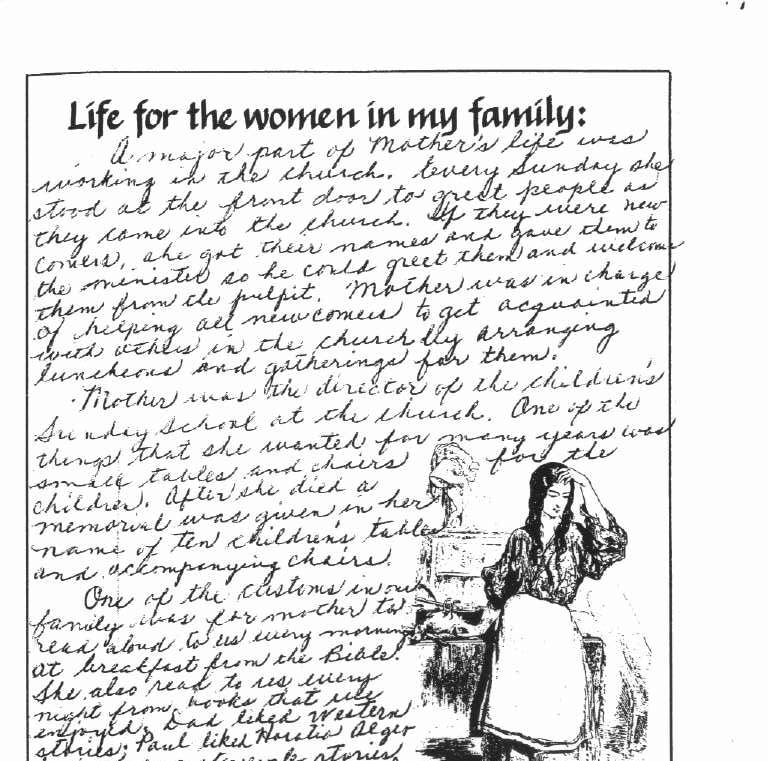 Life for the women in my family:
A major part of Mother's life was
working in the church. Every Sunday she
stood at the front door to greet people as
they came into the church. If they were new
comers, she got their names and gave them to
the minister so he could greet them and welcome
them from the pulpit. Mother was in charge
of helping all newcomers to get acquainted
with others in the church by arranging
luncheons and gatherings for them.
Mother was the director of the children's
Sunday School at the church. One of the
things that she wanted for many years was
small tables and chairs for the
children. After she died a
memorial was given in her
name of ten children's tables
and accompanying chairs.
One of the customs in our
family was for mother to
read aloud to us every morning
at breakfast from the Bible.
She also read to us every
night from books that we
enjoyed. Dad liked Western
stories; Paul liked Horatio Alger
stories